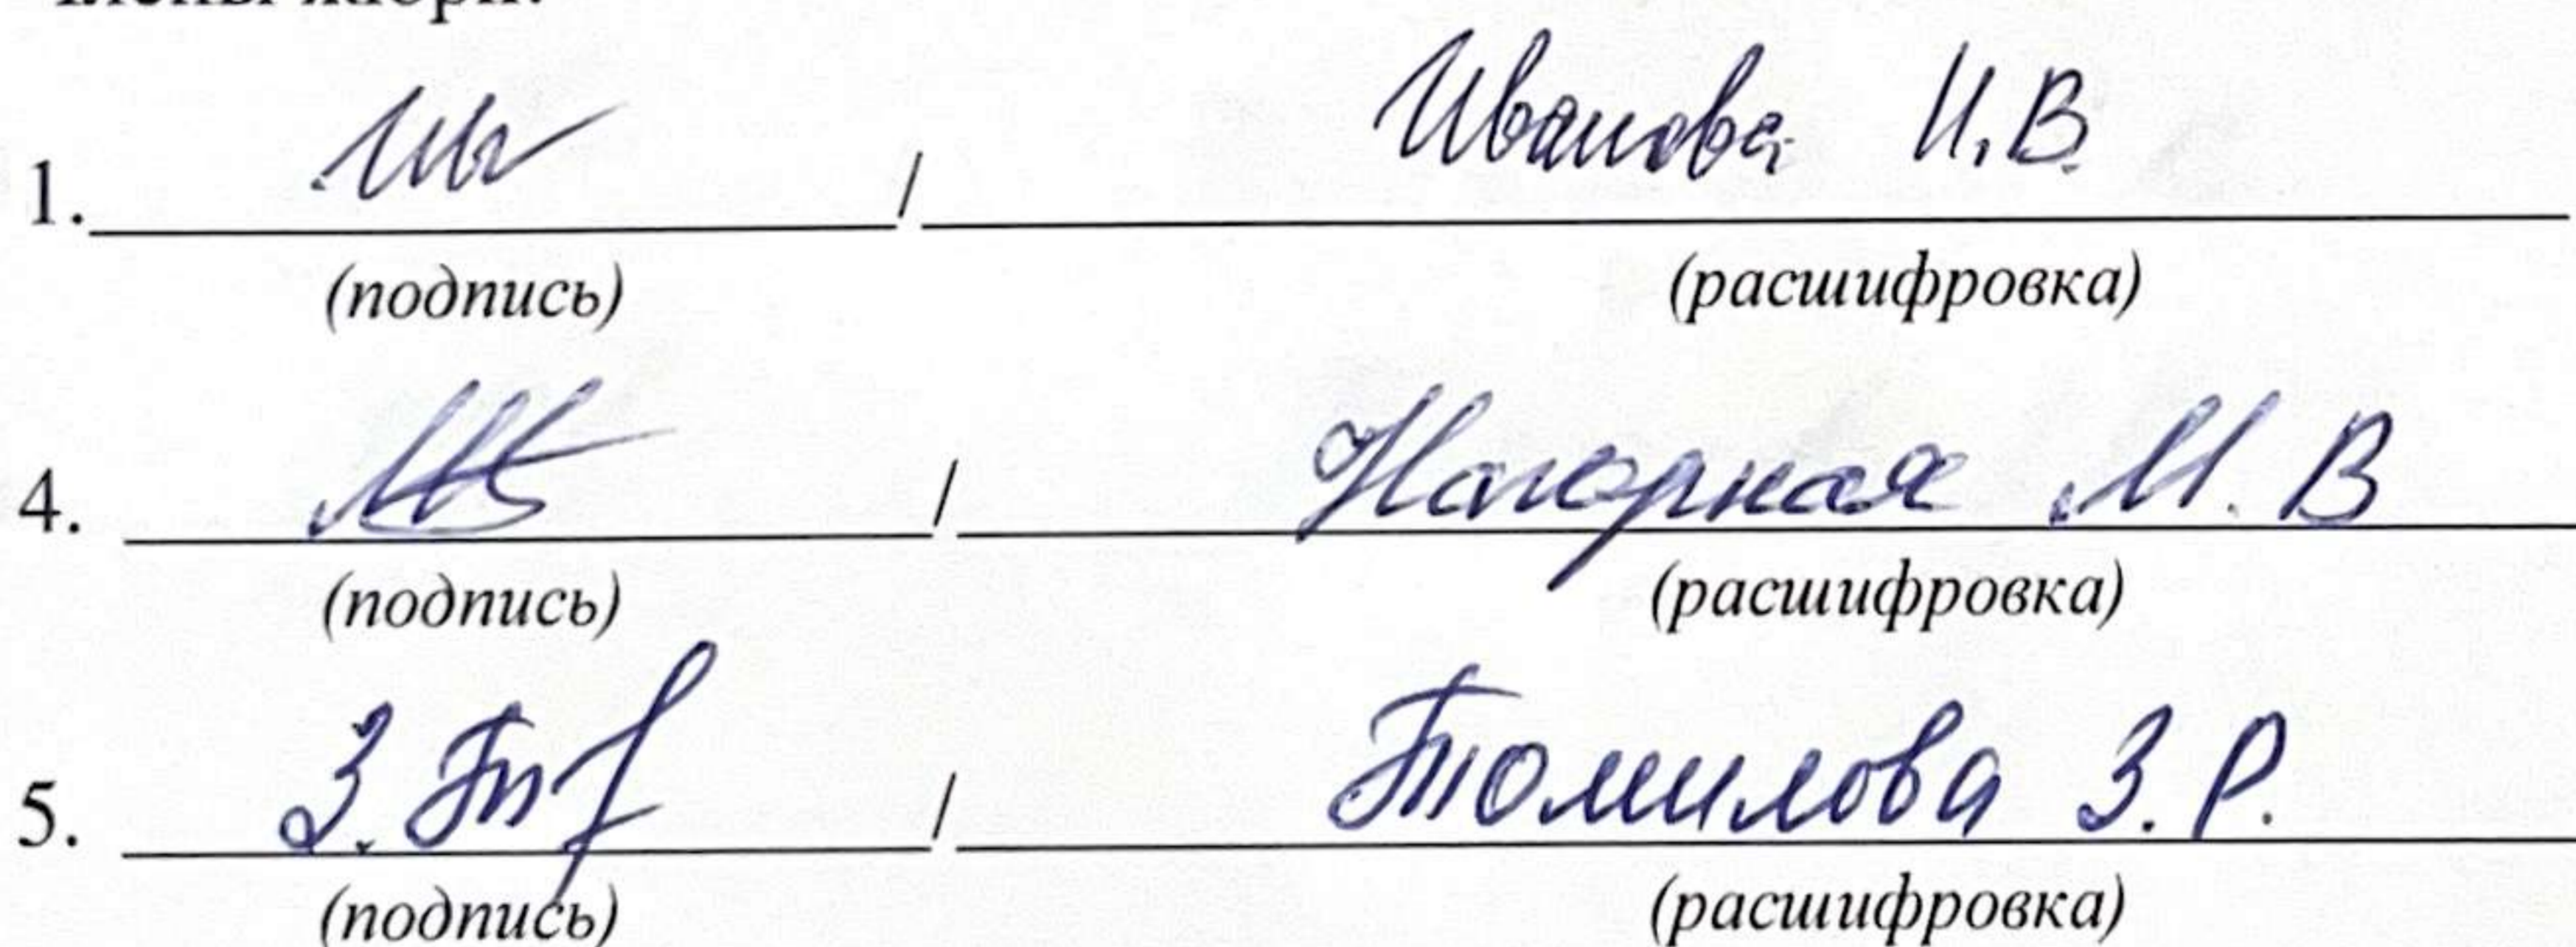 члены жюри:
1. / Иванова И.В.
(подпись) (расшифровка)
4. / Нагорная М.В
(подпись) (расшифровка)
5. З. / Томилова З.Р.
(подпись) (расшифровка)